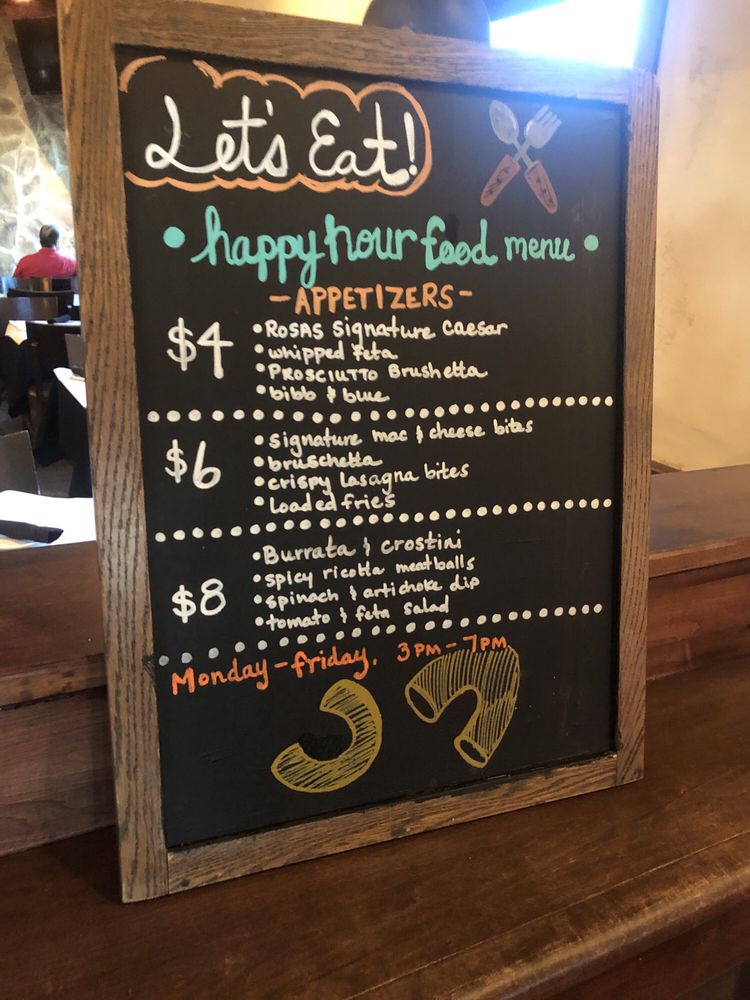 Let's Eat!
• happy hour food menu •
- APPETIZERS -
$4
• ROSAS Signature Caesar
• whipped feta
• PROSCIUTTO Brushetta
• bibb & blue
$6
• signature mac & cheese bites
• bruschetta
• crispy lasagna bites
• Loaded fries
$8
• Burrata & crostini
• spicy ricotta meatballs
• spinach & artichoke dip
• tomato & feta salad
Monday-friday. 3PM-7PM